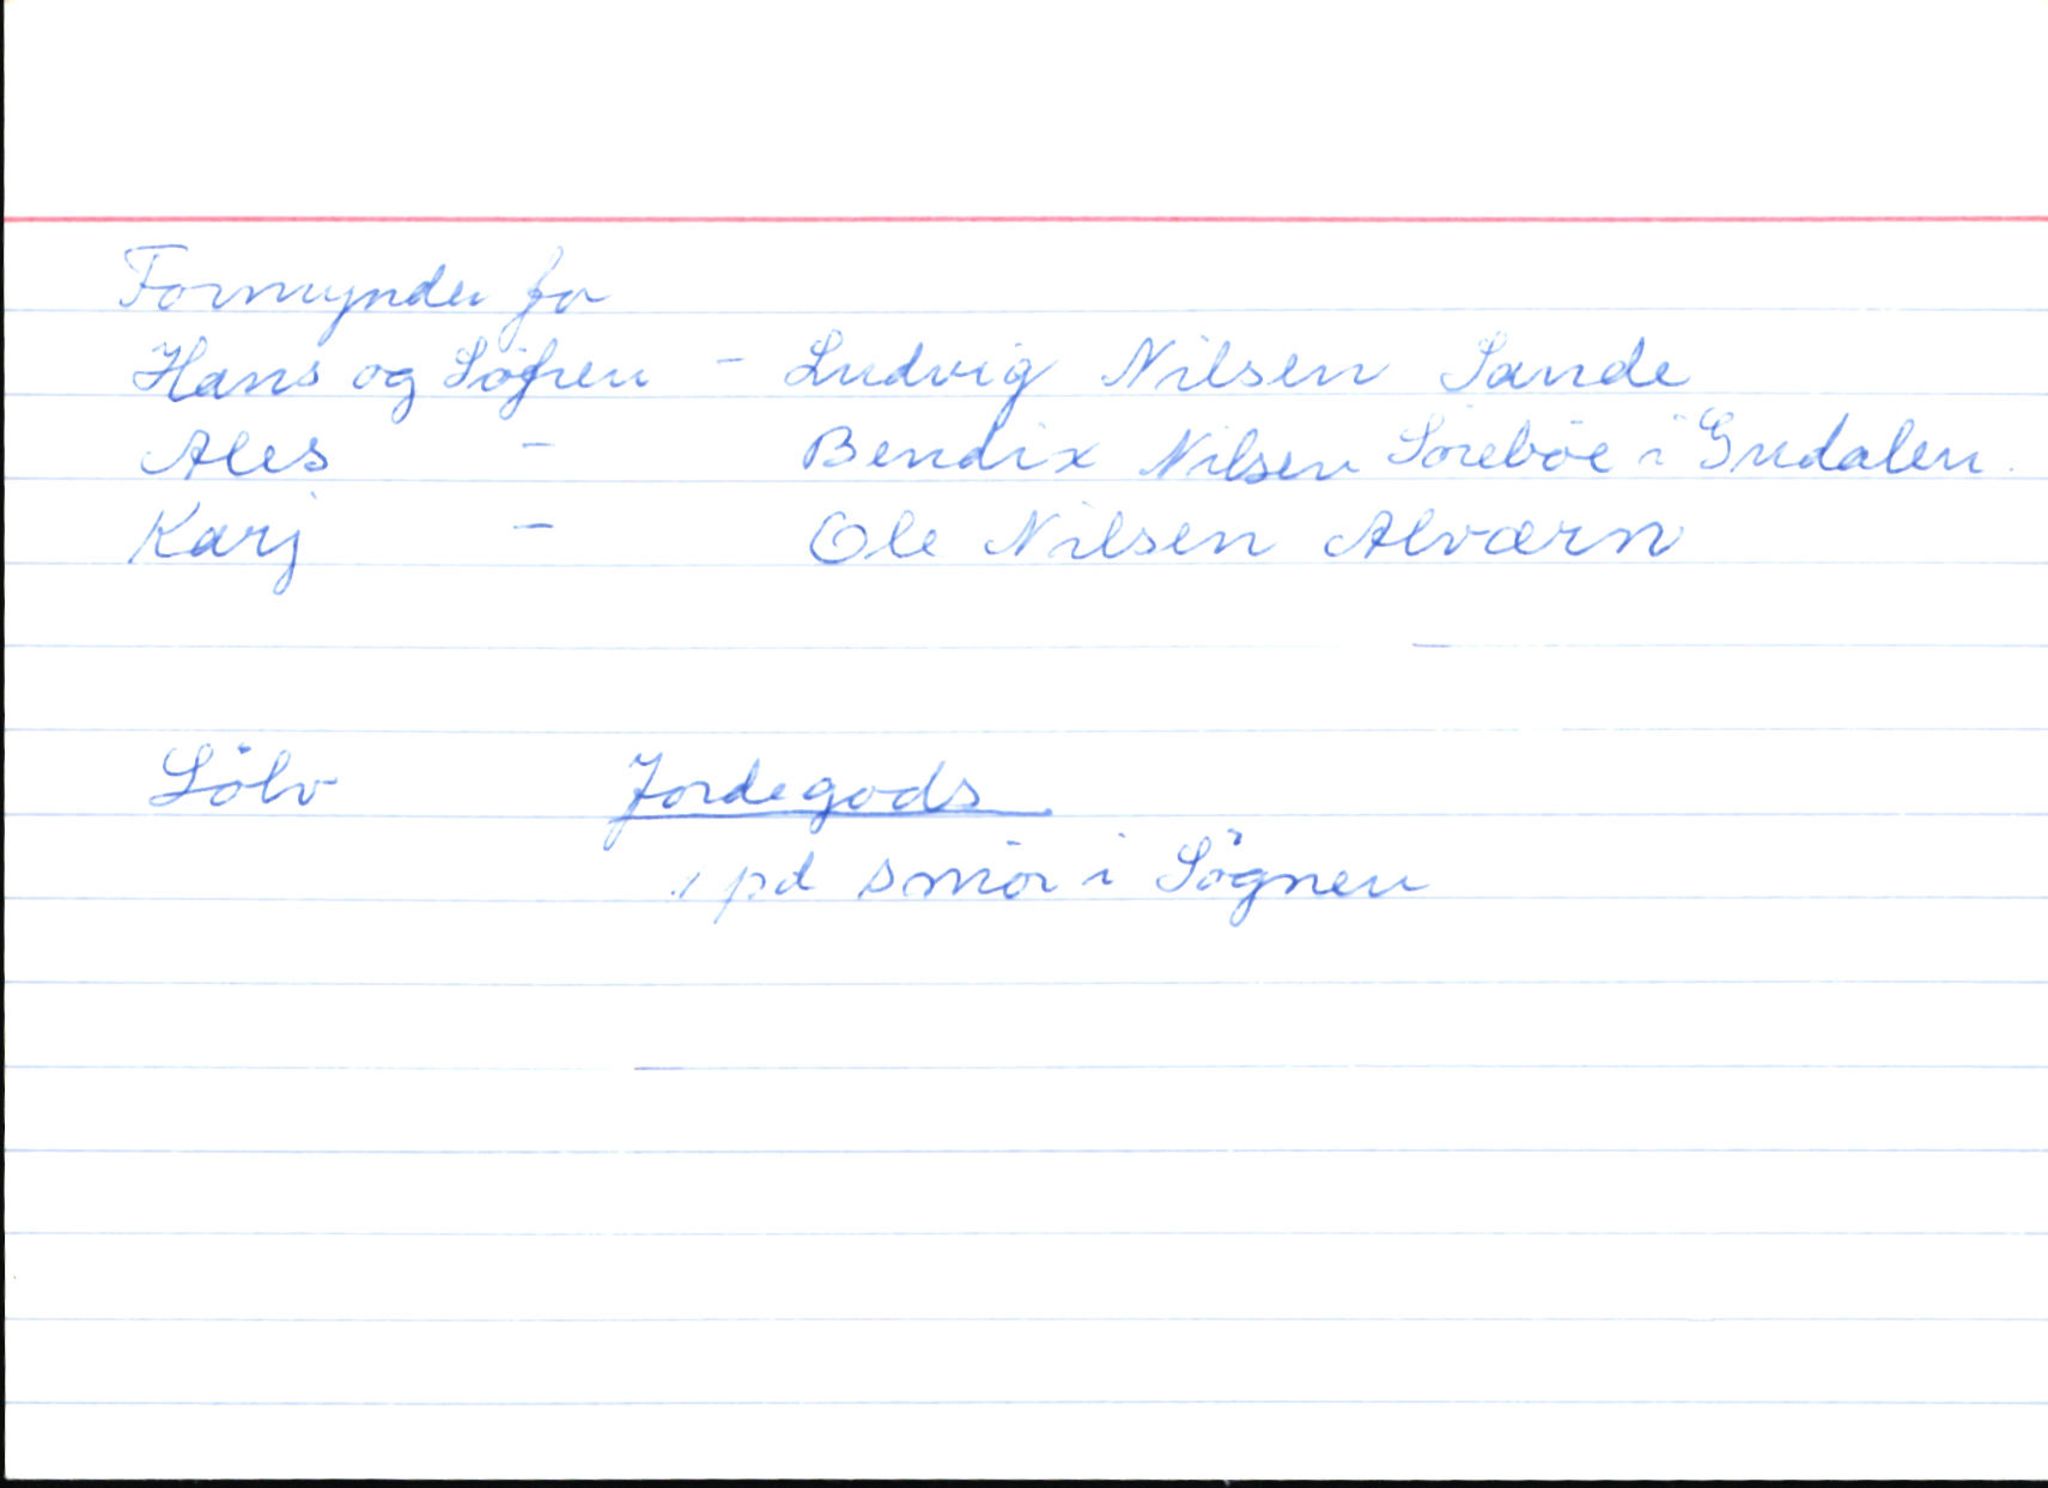 Formynder for
Hans og Søfren - Ludvig Nilsen Sande
Ales - Bendix Nilsen Sörebøe i Gudalen.
Karj - Ole Nilsen Alværn
Sölv Jordegods
1 pd smör i Sögnen